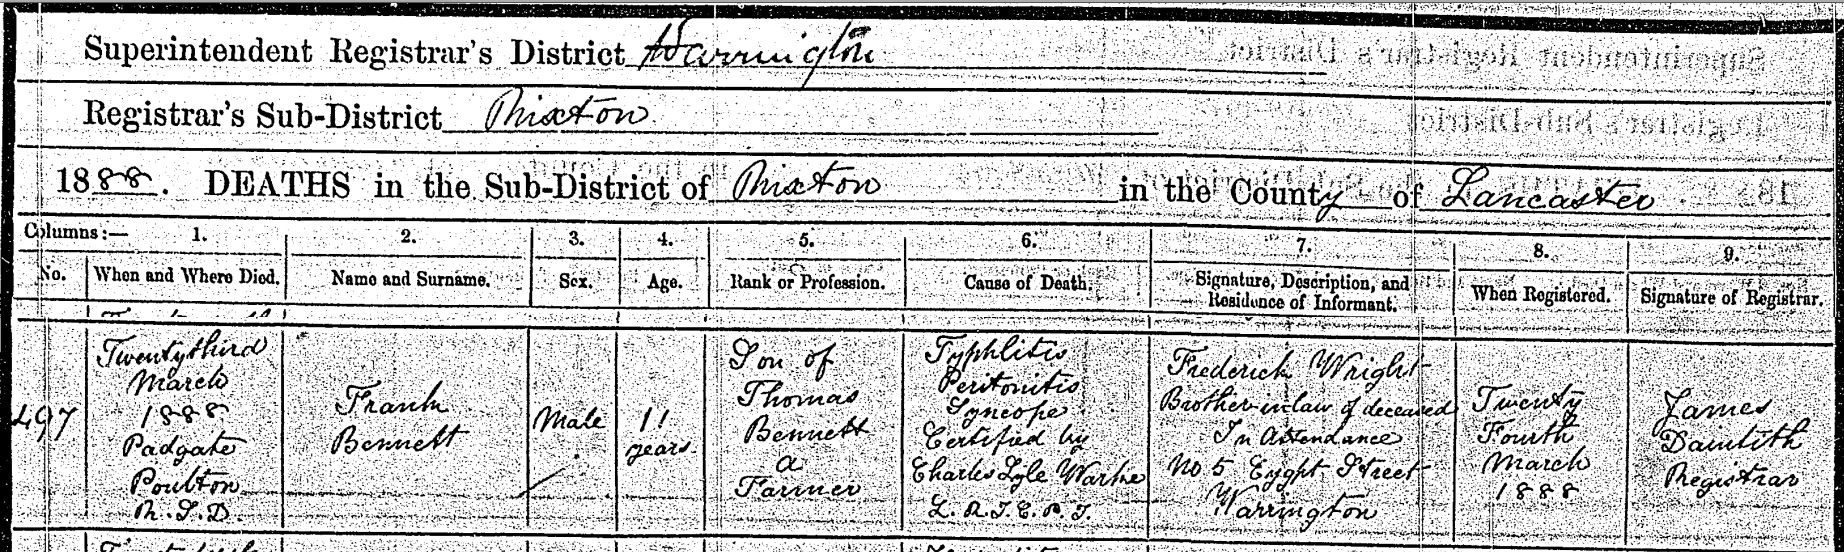 Superintendent Registrar's District Warrington
Registrar's Sub-District Rixton
1888. DEATHS in the Sub-District of Rixton in the County of Lancaster
Columns:— 1. 2. 3. 4. 5. 6. 7. 8. 9.
No. When and Where Died. Name and Surname. Sex. Age. Rank or Profession. Cause of Death. Signature, Description, and Residence of Informant. When Registered. Signature of Registrar.
497
Twenty third
March
1888
Padgate
Poulton
R.S.D.
Frank
Bennett
Male
11
years
Son of
Thomas
Bennett
a
Farmer
Typhlitis
Peritonitis
Syncope
Certified by
Charles Lyle
Frederick Wright
Brother-in-law of deceased
In Attendance
No 5 Eygpt Street
Warrington
Twenty
Fourth
March
1888
James
Daintith
Registrar